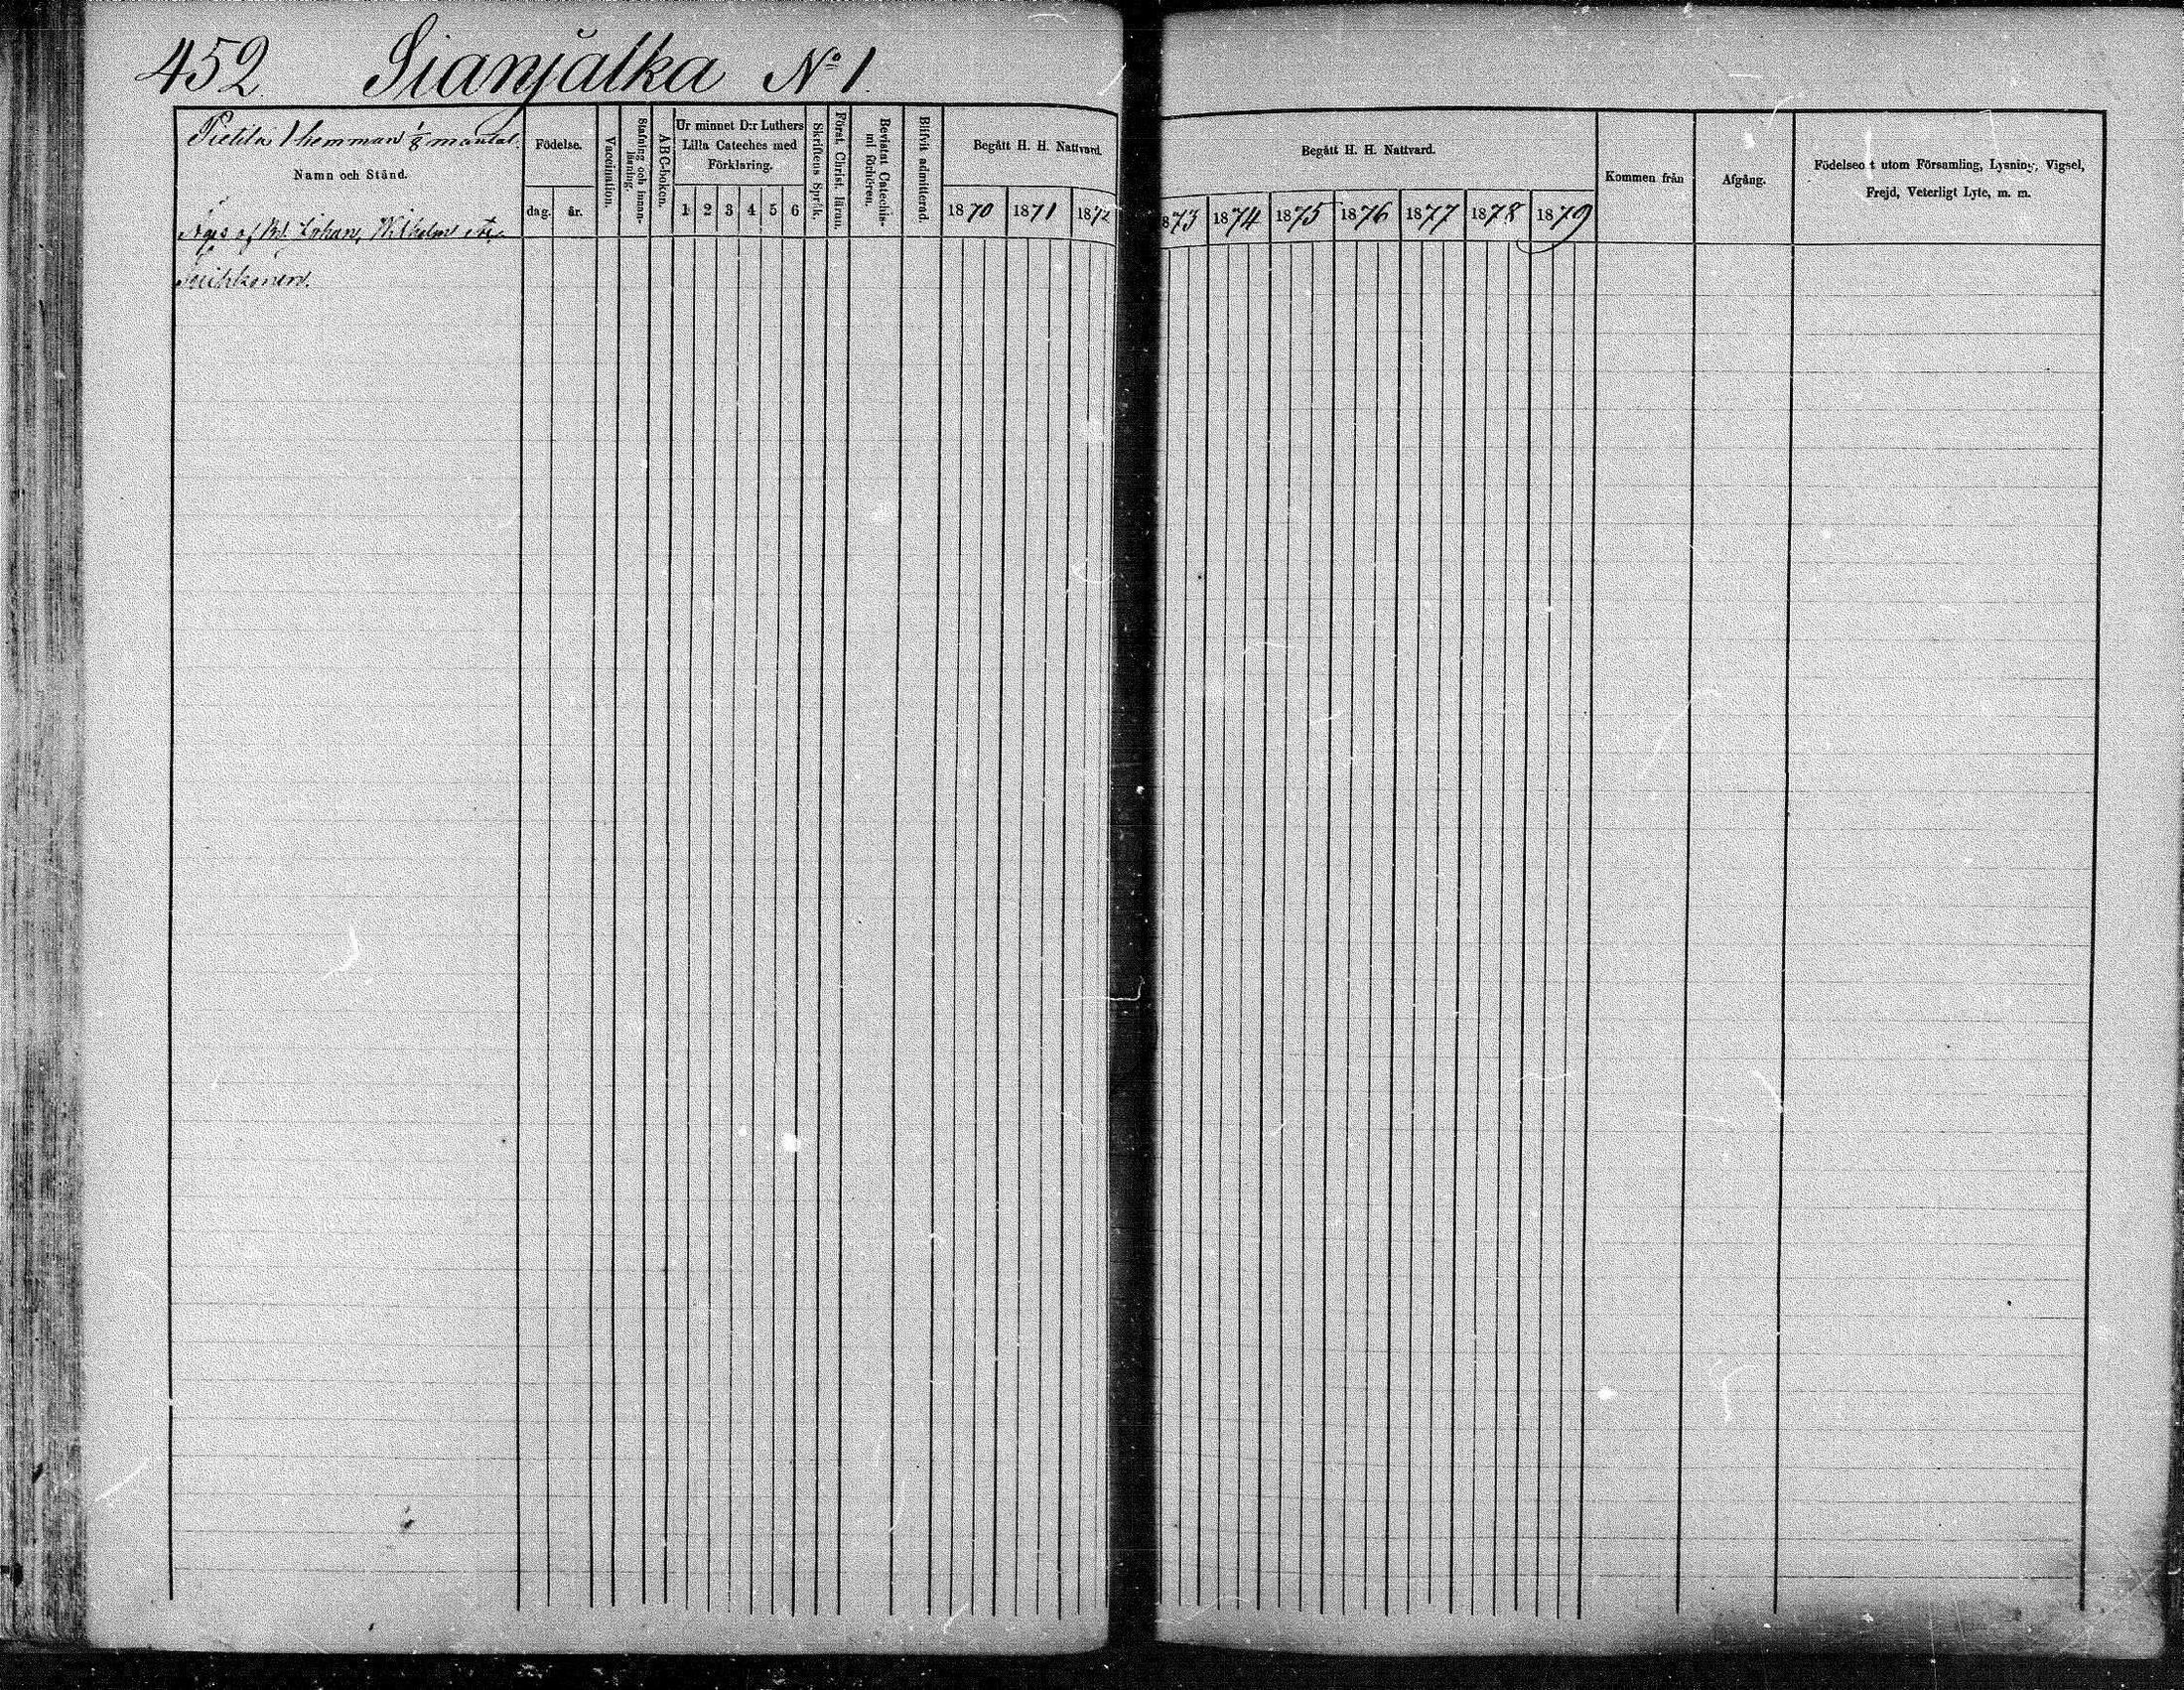 452 Sianjalka No 1.
Pietilä 1 hemman 1/8 mantal.
Namn och Stånd.
Äges af Johan Wilhelm
Födelse.
dag. år.
Vaccination.
Stafning och innan-
läsning.
ABC-boken.
Ur minnet D:r Luthers
Lilla Cateches med
Förklaring.
1 2 3 4 5 6
Skriftens Språk.
Först. Christ. läran.
Bevistat Catechis-
mi förhören.
Blifvit admitterad.
Begått H. H. Nattvard.
1870 1871 1872
Begått H. H. Nattvard.
873 1874 1875 1876 1877 1878 1879
Kommen från
Afgång.
Födelseo t utom Församling, Lysning, Vigsel,
Frejd, Veterligt Lyte, m. m.